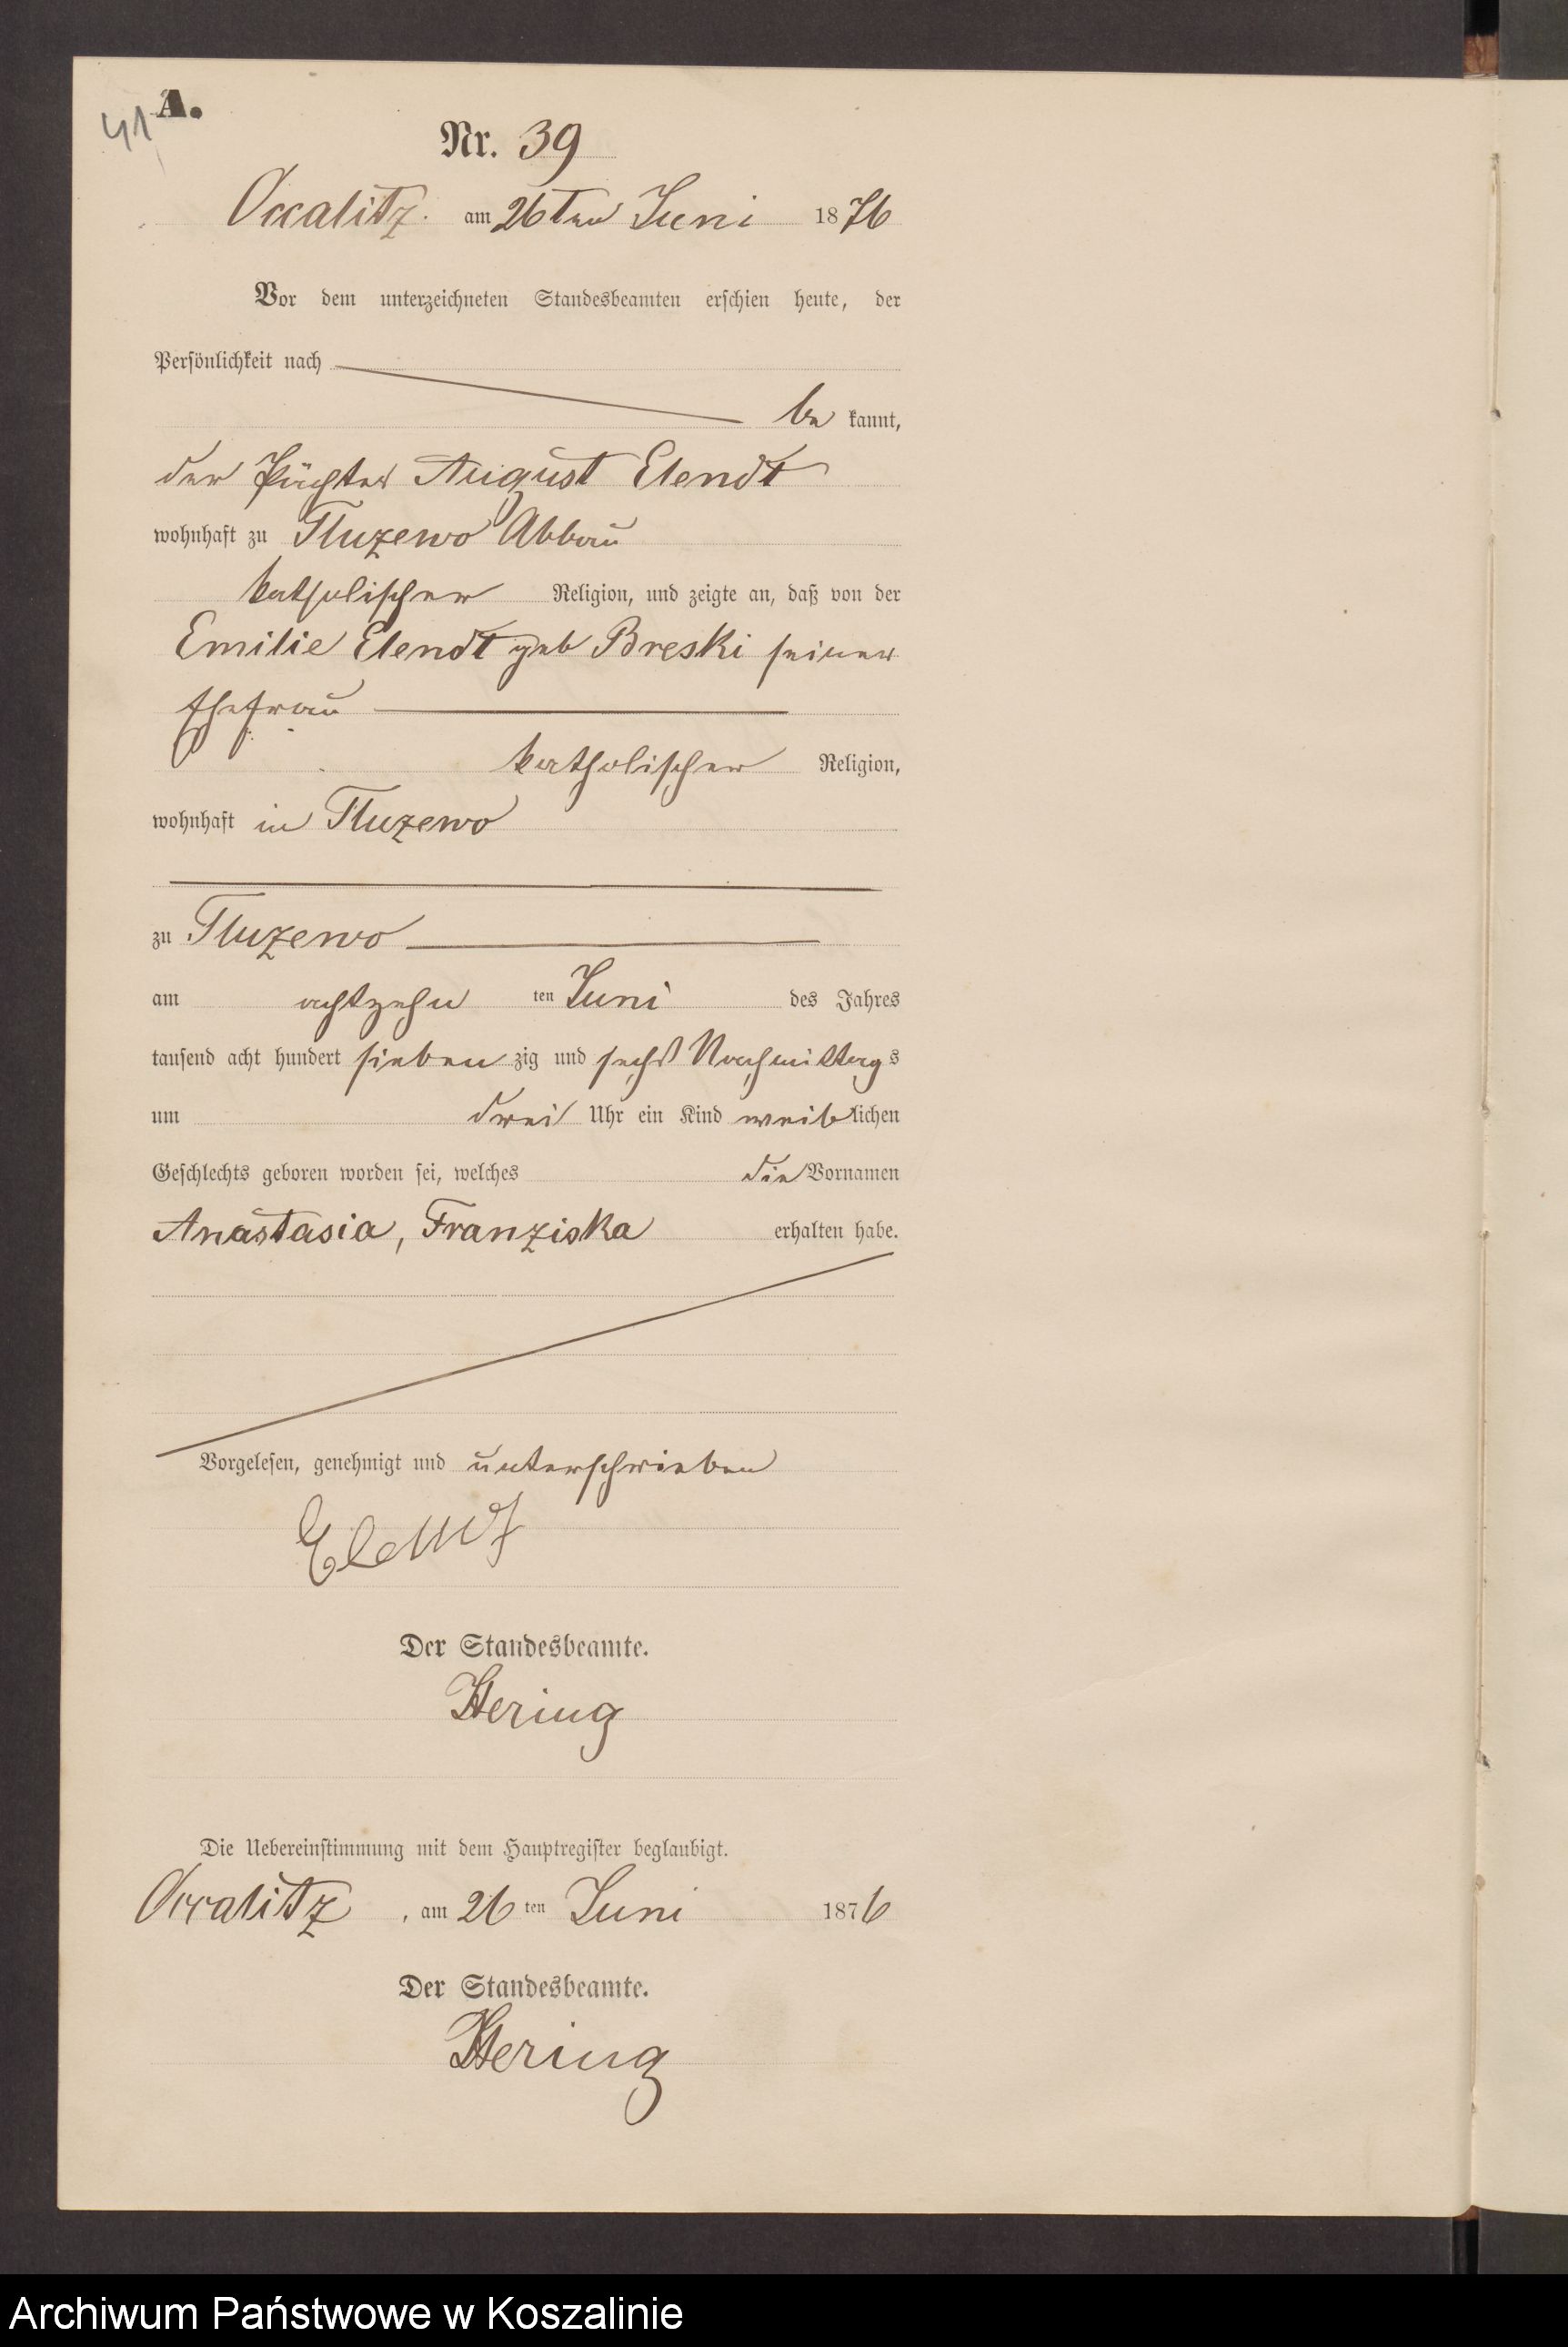 41
A.
Nr. 39
Occalitz. am 26ten Juni 1876
Vor dem unterzeichneten Standesbeamten erschien heute, der
Persönlichkeit nach
be kannt,
der Pächter August Elendt
wohnhaft zu Tluzewo Abbau
katholischer Religion, und zeigte an, daß von der
Emilie Elendt geb Breski seiner
Ehefrau
katholischer Religion,
wohnhaft in Tluzewo
zu Tluzewo
am achtzehn ten Juni des Jahres
tausend acht hundert sieben zig und sechs Nachmittags
um drei Uhr ein Kind weiblichen
Geschlechts geboren worden sei, welches die Vornamen
Anastasia, Franziska erhalten habe.
Vorgelesen, genehmigt und unterschrieben
Elendt
Der Standesbeamte.
Hering
Die Uebereinstimmung mit dem Hauptregister beglaubigt.
Occalitz, am 26 ten Juni 1876
Der Standesbeamte.
Hering
Archiwum Państwowe w Koszalinie